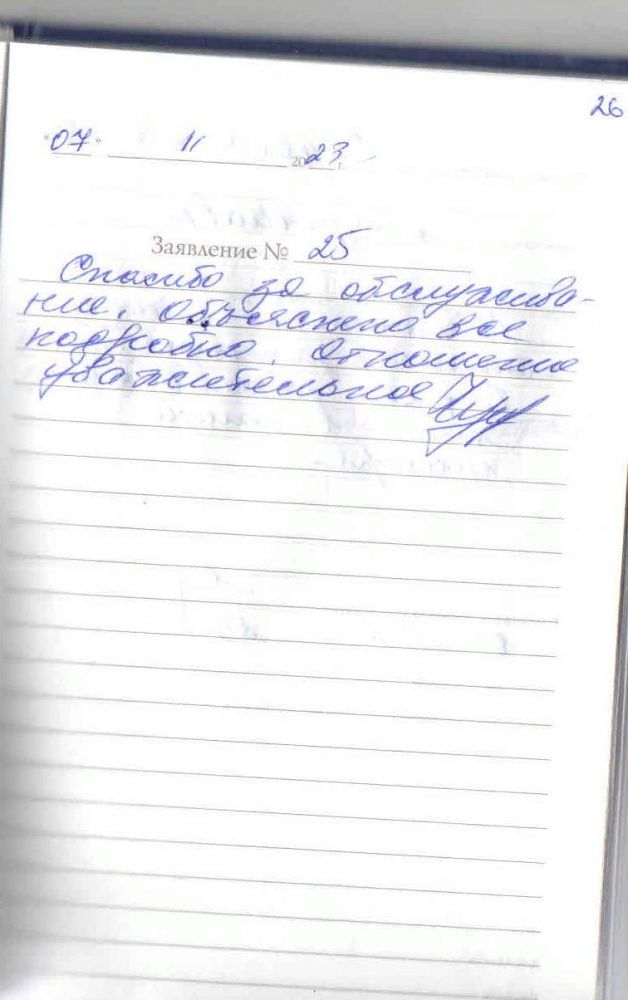 26
"07" 11 2023 г.
Заявление № 25
Спасибо за обслужива-
ние. Объяснено все
подробно. Отношение
уважительное